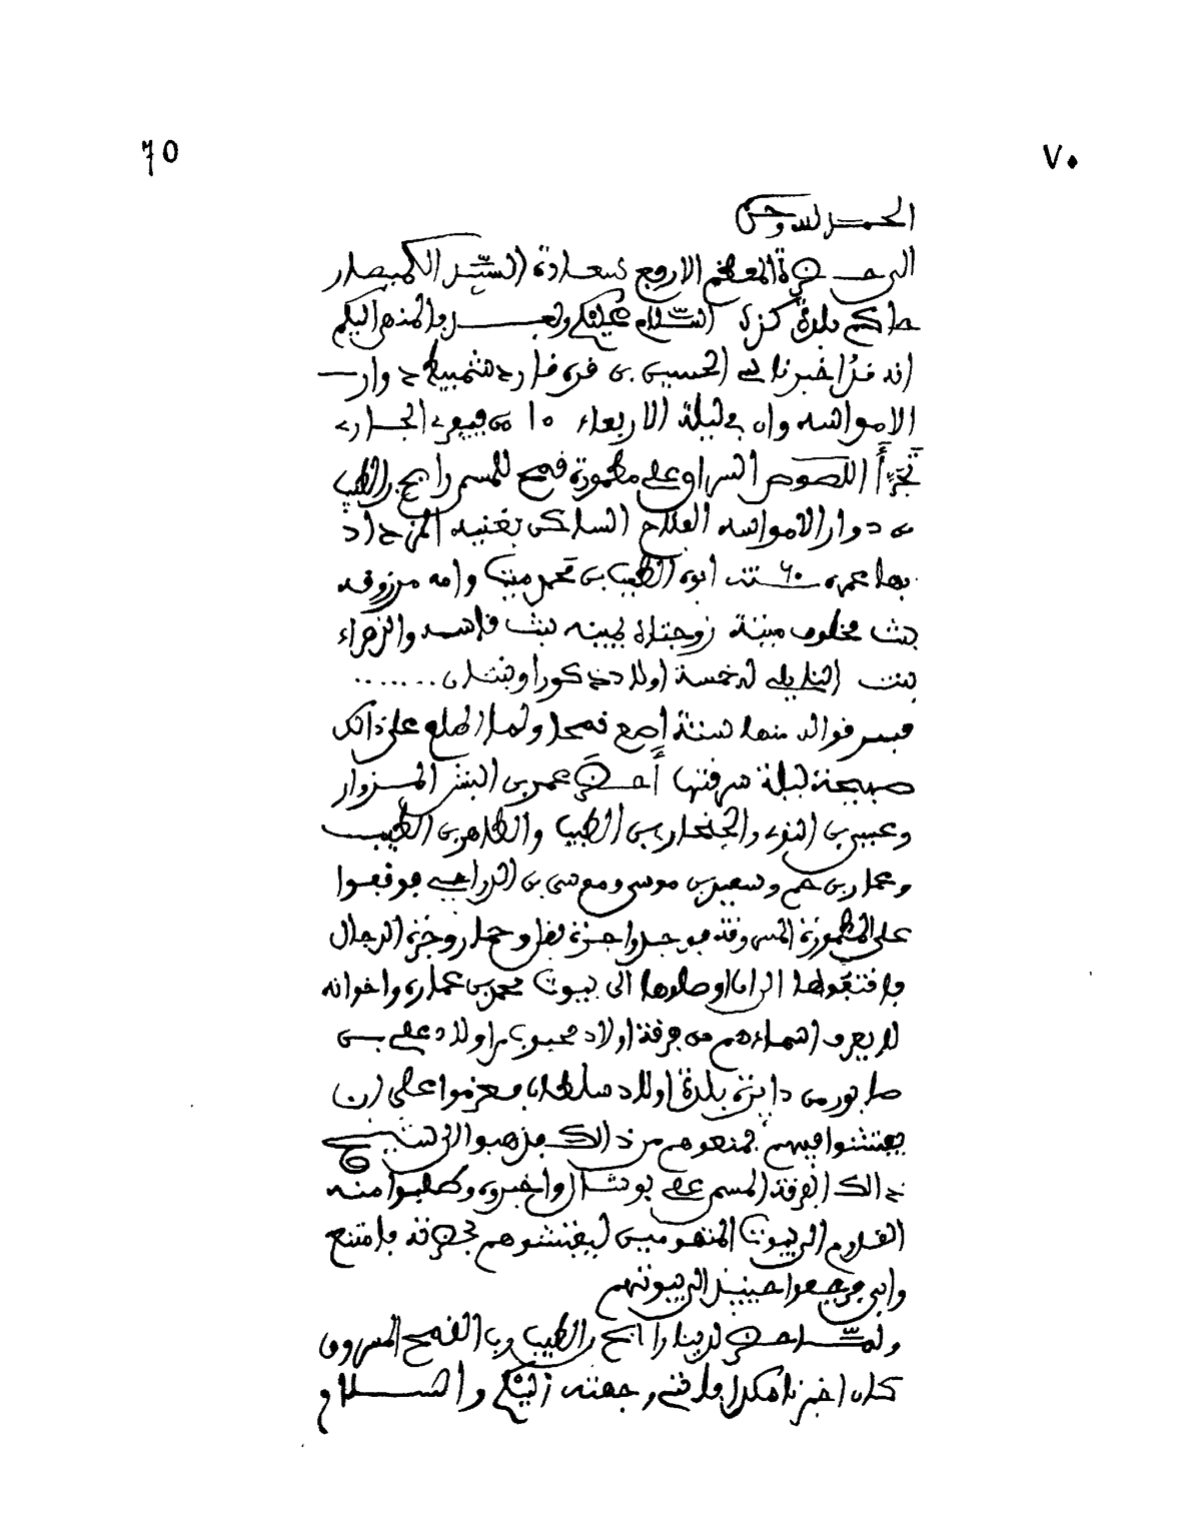 70
٧٠
الحمد لله وحده
الى حضرة المعظم الارفع سعادة السيد الكميصار
حاكم بلدة السلام عليكم وبعد فالمنهى اليكم
انه قد اخبرنا الحسين بن قره قايد شنبيط دوار
الامواسه وان في ليلة الاربعاء ١٥ من فيفرى الجارى
تجرأ اللصوص السراق على مطمورة قمح للمسمى رابح بن الطيب
من دوار الامواسه الفلاح الساكن
بها عمره ٦٠ سنة ابوه الطيب بن محمد ميت وامه مرزوقه
بنت مخلوف ميتة زوجتاه يمينه بنت قاسم والزهراء
بنت النايلي له خمسة اولاد ذكورا وبنتان .......
فسرقوا له منها ستة اصع قمحا ولما اطلع على ذالك
صبيحة ليلة سرقتها أحضر عمر بن البشر المزوار
وعيسى بن النوى والجنحاد بن الطيب والطاهر بن الطيب
وعمار بن حم وسعيد بن موسى وموسى بن الدراجي فوقفوا
على المطمورة المسروقة فوجدوا جرة بغل وحمار وجرة الرجال
فاقتفوها الى ان اوصلوها الى بيوت محمد بن عماره واخوانه
لا يعرف اسماءهم من فرقة اولاد محبوب من اولاد علي بن
صابور من دايرة بلدة اولاد سلطان فعزموا على ان
يفتشوا فيهم فمنعوهم من ذالك فذهبوا الى شيخ
ذالك الفرقة المسمى علي واخبروه وطلبوا منه
القدوم الى بيوت المتهومين ليفتشوهم بحضرته فامتنع
وابى فرجعوا حينئذ الى بيوتهم
ولما حضر لدينا رابح بن الطيب رب القمح المسروق
كان اخبرنا هكذا فاقتضى رفعته اليكم والسلام